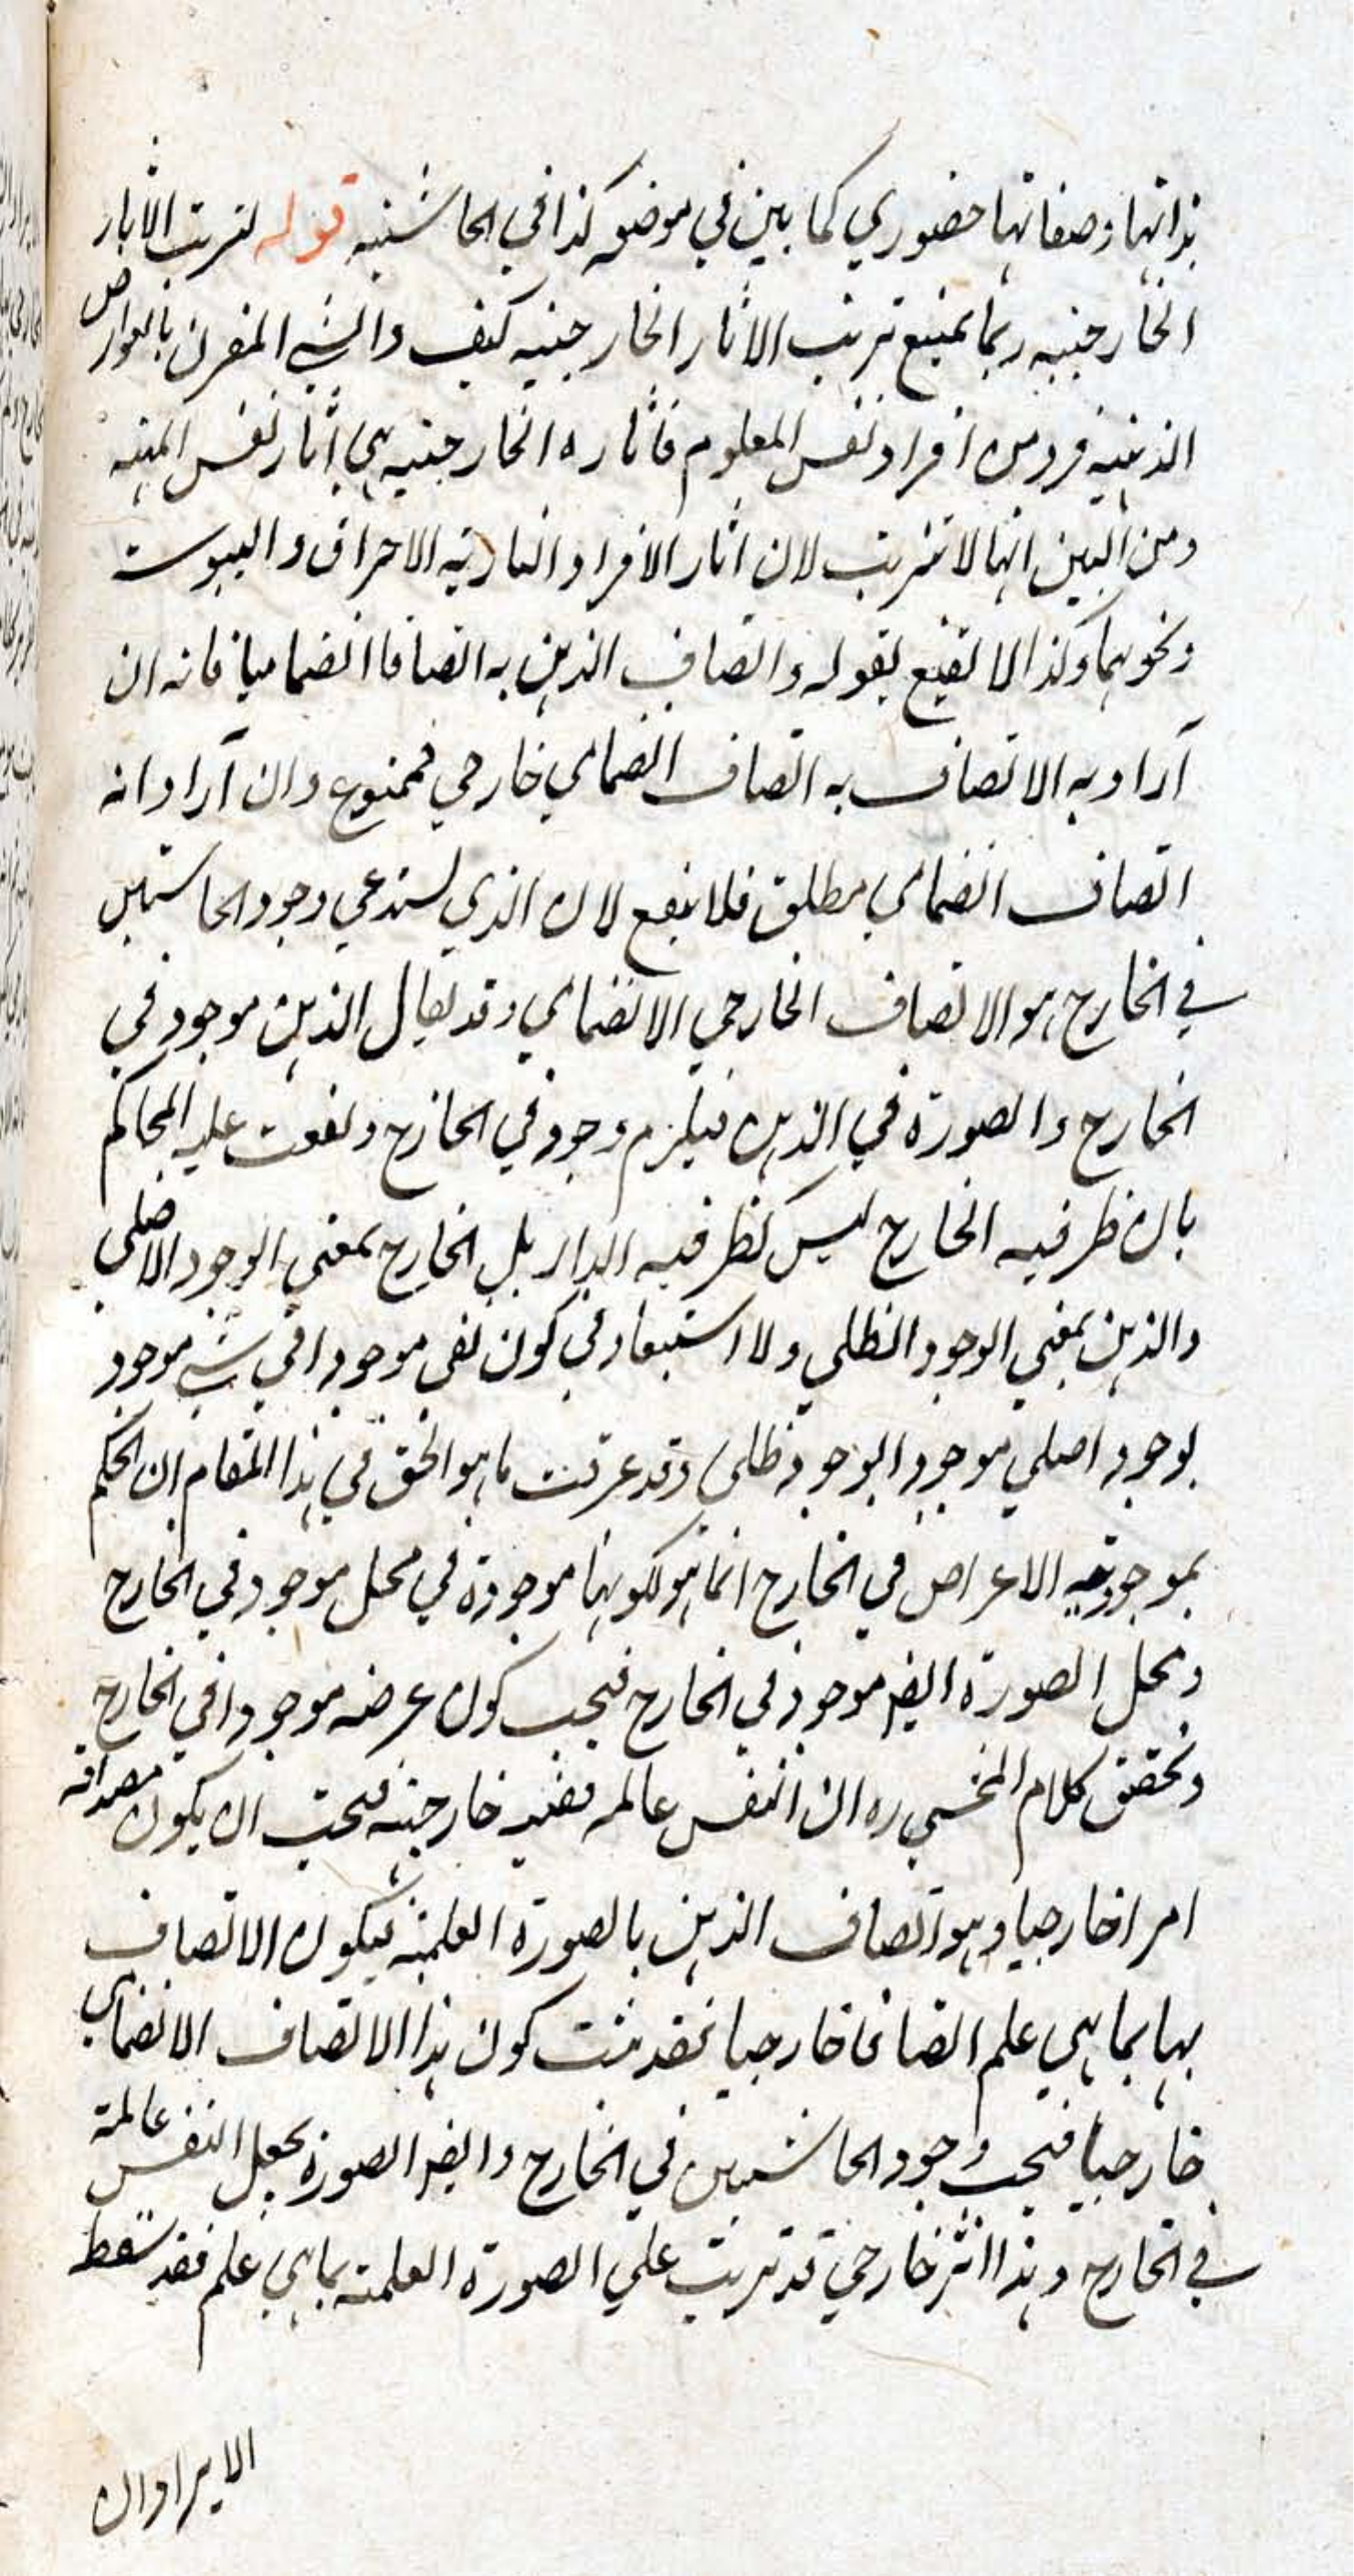 بذاتها وصفاتها حضوري كما بين في موضعه كذا في الحاشيه قوله لترتب الاثار
الخارجيه ربما يمنع ترتب الاثار الخارجيه كيف والشي المقرن بالعوارض
الذهنيه فرد من افراد نفس المعلوم فاثاره الخارجيه هي اثار نفس المهيه
ومن البين انها لا تترتب لان اثار الافراد الناريه الاحراق واليبوست
ونحوهما وكذا لا تقنع بقوله واتصاف الذهن به اتصافا انضماميا فانه ان
آراد به الاتصاف به اتصاف انضمامي خارجي فممنوع وان آراد انه
اتصاف انضمامي مطلق فلا ينفع لان الذي يستدعي وجود الحاشيتين
في الخارج هو الاتصاف الخارجي الانضمامي وقد يقال الذهن موجود في
الخارج والصورة في الذهن فيلزم وجود في الخارج المحاكم
بان ظرفيه الخارج ليس كظرفيه الدار بل الخارج بمعني الوجود الاصلي
والذهن بمعني الوجود الظلي ولا استبعاد في كون موجودا في شي موجود
بوجود اصلي موجود ابوجود ظلي وقد عرفت ما هو الحق في هذا المقام ان الحكم
بموجوديه الاعراض في الخارج انما هو لكونها موجودة في محل موجود في الخارج
ومحل الصورة ايضه موجود في الخارج فيجب كون عرضه موجودا في الخارج
وتحقق كلام المحشي ره ان النفس عالمه خارجيه فيجب ان يكون مصداقه
امرا خارجيا وهو اتصاف الذهن بالصورة العلميه فيكون الاتصاف
بها بما هي علم اتصافا خارجيا فقد ثبت كون هذا الاتصاف الانضمامي
خارجيا فيجب وجود الحاشيتين في الخارج وايضه الصورة يجعل النفس عالمة
في الخارج وهذا اثر خارجي قد ترتب علي الصورة العلميه بما هي علم فقد سقط
الايراد ان